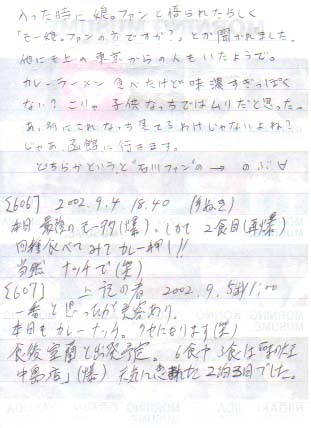 入った時に娘。ファンと悟られたらしく
「モー娘。ファンの方ですか?」とか聞かれました。
他にも上の東京からの人もいたようで。
カレーラーメン 食べたけど味濃すぎっぽく
ない? こりゃ子供なっちではムリだと思った。
あ、別にこれなっち見てるわけじゃないよね?
じゃあ、函館に行きます。
どちらかというと"石川ファン"の → のぶ
[606] 2002.9.4 18.40
本日最後のモーヲタ(爆)。しかも2食目(再爆)
同種食べてみてカレー押し!!
当然 ナッチで(笑)
[607] 上記の者 2002.9.5 11:00
一番と思ったが先客あり。
本日もカレーナッチ。クセになります(笑)
食後室蘭を出発予定。6食中3食は「味の大王
中島店」(爆) 天気に恵まれた2泊3日でした。
MORNING
MUSUME
NIIGAKI
IIDA
YASUDA